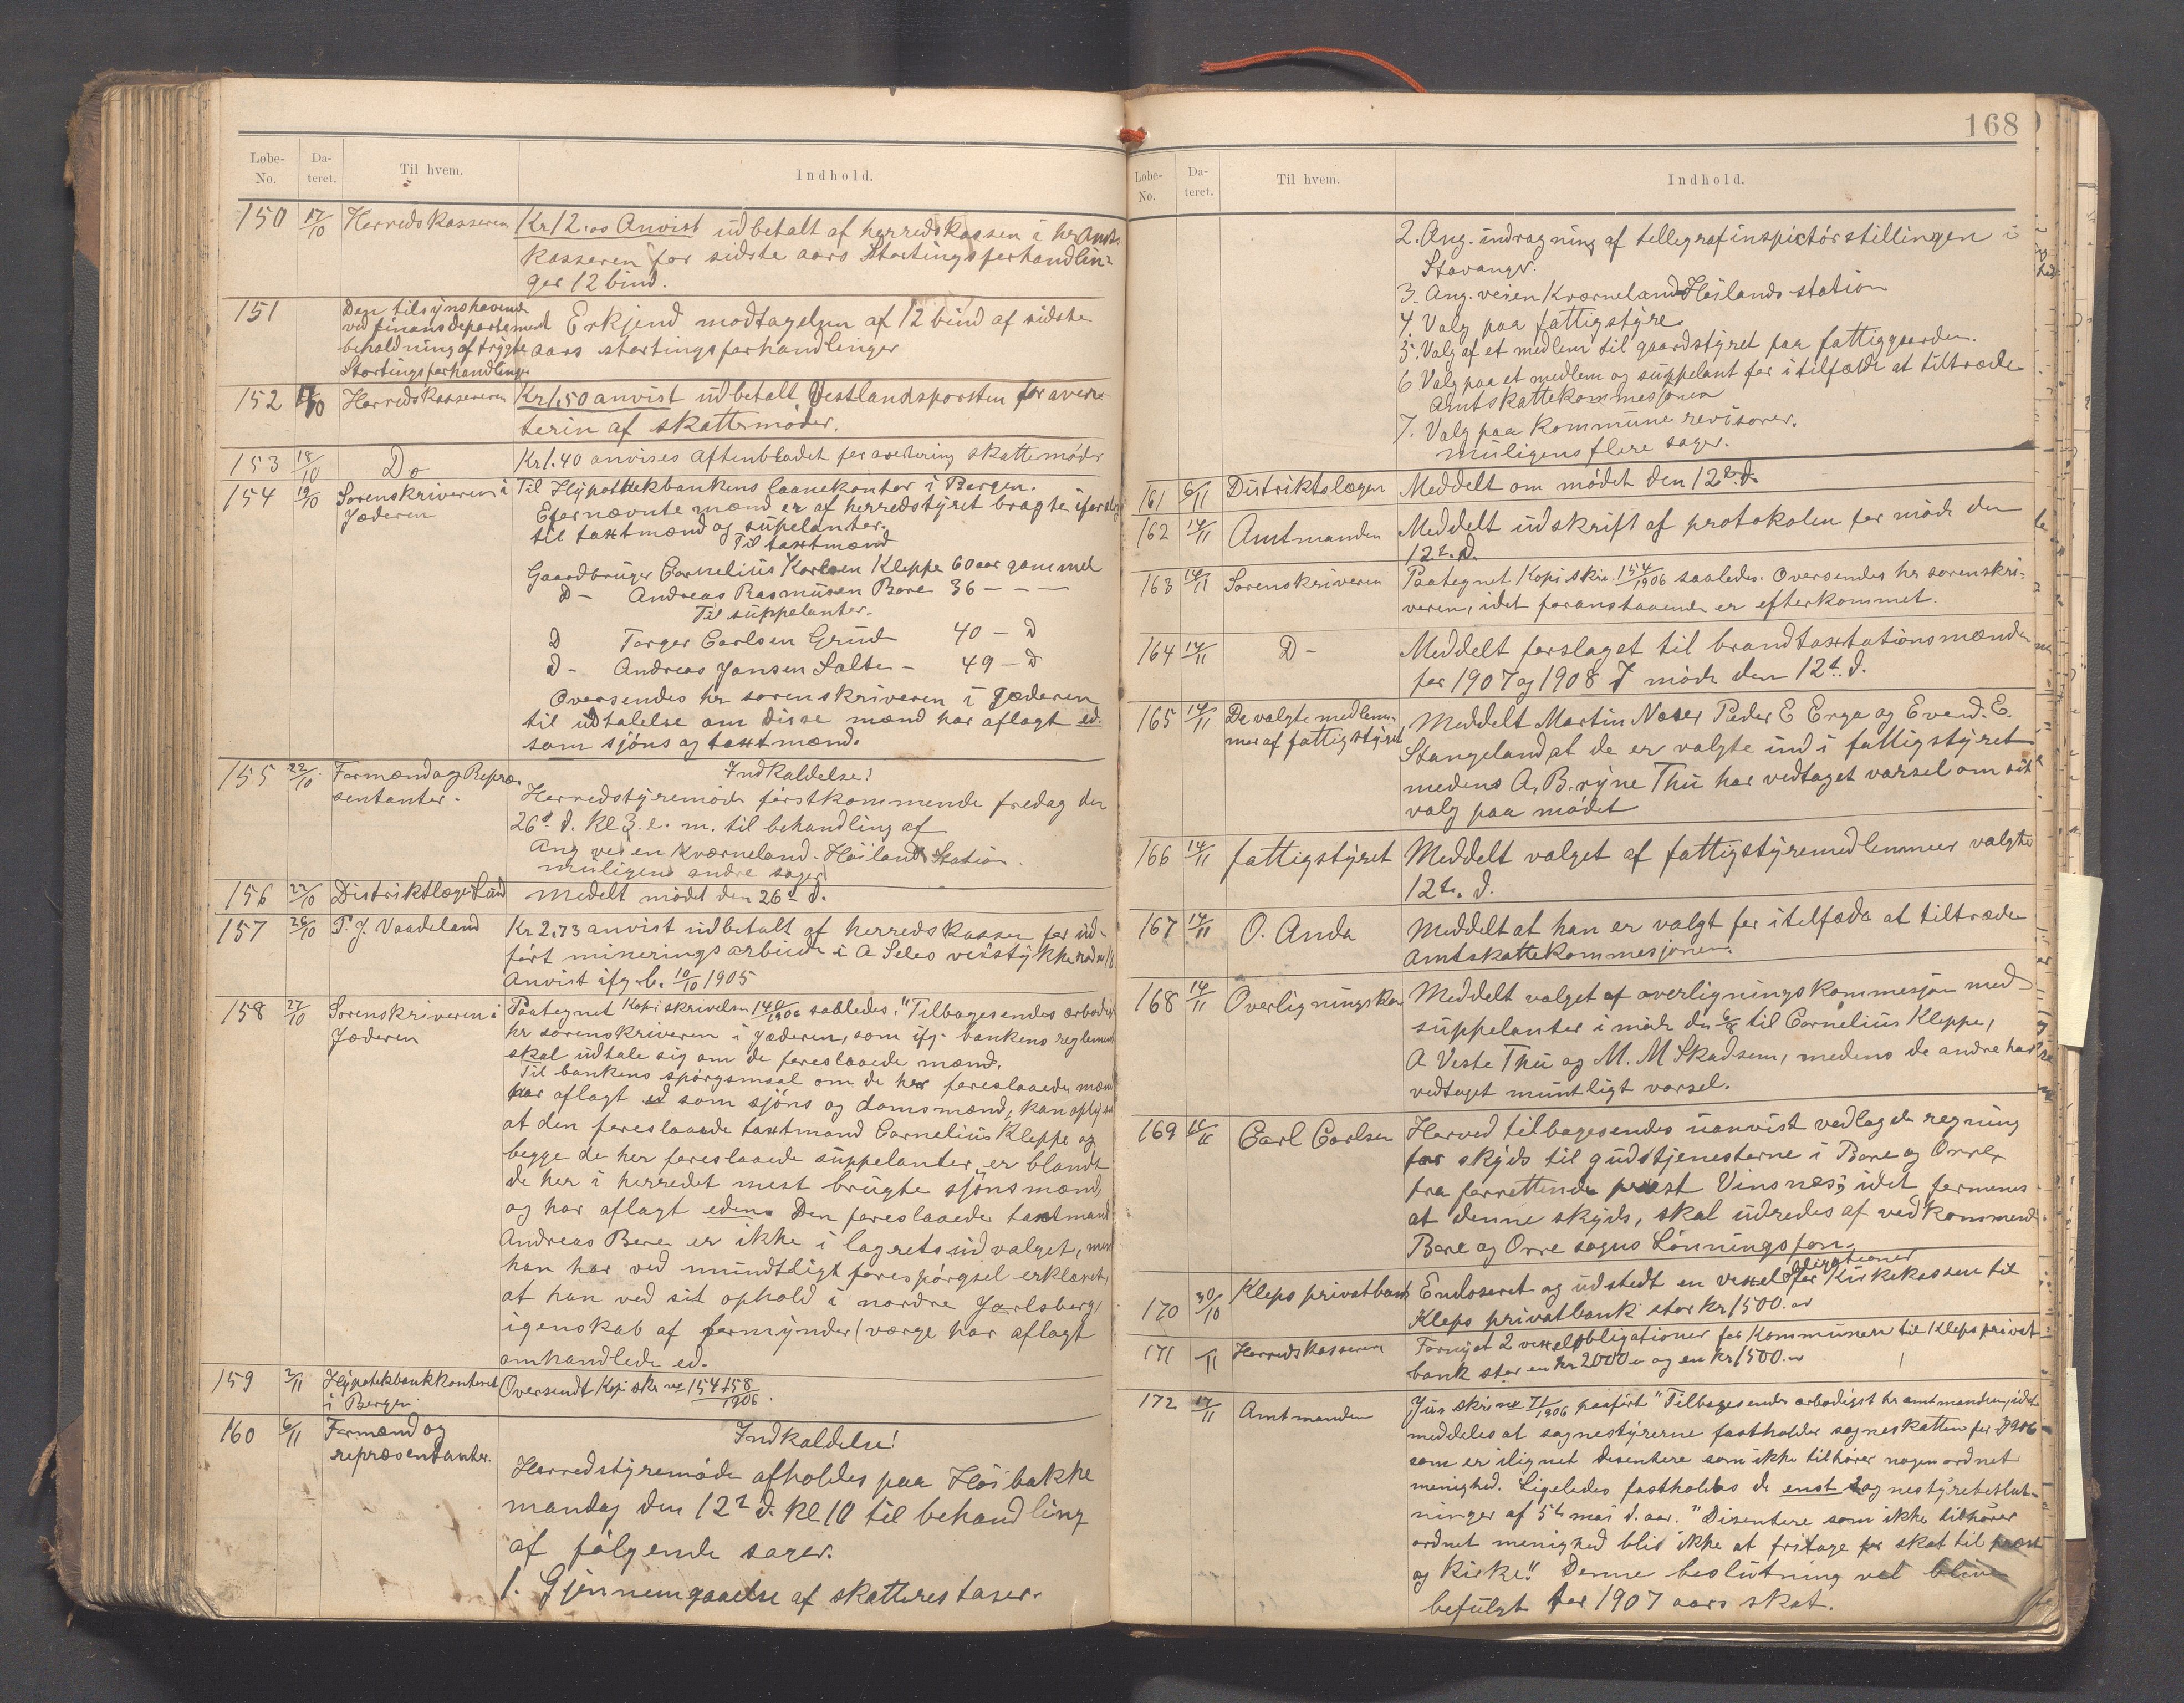 Løbe-No. Da-teret. Til hvem. Indhold.
150 17/10 Herredskasseren Kr 12.00 Anvist udbetalt af herredskassen i hr Amts
kasseren for sidste aars Stortingsforhandlin-
ger 12 bind.
151 Den tilsynshavende
ved finansdepartement Erkjend modtagelsen af 12 bind af sidste
beholdning af trygte aars stortingsforhandlinger
Stortingsforhandlinger
152 17/10 Herredskasseren Kr 1.50 anvist udbetalt Vestlandsposten for aver-
terin af skattemøder.
153 18/10 Do Kr 1.40 anvises Aftenbladet for avertering skattemøder
154 19/10 Sorenskriveren i Til Hypothekbankens laanekontor i Bergen.
Jæderen Efternævnte mænd er af herredstyret bragte i forslag
til taxtmænd og supelanter.
Til taxtmænd
Gaardbruger Cornelius Karlsen Kleppe 60 aar gammel
D - Andreas Rasmusen Bore 36 - - -
Til suppelanter.
D Torger Carlsen Grude 40 - D
D - Andreas Jansen Salte - 49 - D
Oversendes hr sorenskriveren i Jæderen
til udtalelse om disse mænd har aflagt ed.
som sjøns og taxtmænd.
155 22/10 Formænd og Repræ- Indkaldelse!
sentanter. Herredstyremøde førstkommende fredag den
26d d. Kl 3 e. m. til behandling af
Ang veien Kværneland - Høiland Station.
muligens andre sager
156 22/10 Distriktlæge Lund Medelt mødet den 26d d.
157 26/10 T. J. Vasdeland Kr 2.73 anvist udbetalt af herredskassen for ud-
ført mineringsarbeide i A Seles veistykke rode 18
Anvist ifg. b. 10/10 1905
158 27/10 Sorenskriveren i Paategnet Kopi skrivelse 140/1906 saaledes. "Tilbagesendes ærbødigst
Jæderen hr sorenskriveren i Jæderen, som ifg. bankens reglement
skal udtale sig om de foreslaaede mænd.
Til bankens spørgsmaal om de her foreslaaede mænd
har aflagt ed som sjøns og domsmænd, kan oplyses
at den foreslaaede taxtmand Cornelius Kleppe og
begge de her foreslaaede suppelanter er blandt
de her i herredet mest brugte sjønsmænd,
og har aflagt eden. Den foreslaaede taxtmand
Andreas Bore er ikke i lagretsudvalget, men
han har ved mundtligt forespørgsel erklæret,
at han ved sit ophold i nordre Jarlsberg i
igenskab af formynder (værge har aflagt
omhandlede ed.
159 2/11 Hypotekbankkontoret Oversendt Kopi skr no 154 + 158/1906.
i Bergen
160 6/11 Formænd og Indkaldelse!
repræsentanter. Herredstyremøde afholdes paa Høibakke
mandag den 12t d. Kl 10 til behandling
af følgende sager.
1. Gjennemgaaelse af skatterestaser.
168
Løbe-No. Da-teret. Til hvem. Indhold.
2. Ang. indragning af tellegrafinspictørstillingen i
Stavanger.
3. Ang. veien Kværneland Høilands station
4. Valg paa fattigstyre
5. Valg af et medlem til gaardstyret paa fattiggaarden.
6 Valg paa et medlem og suppelant for i tilfælde at tiltræde
Amtskattekommesjonen
7. Valg paa Kommune revisorer.
Muligens flere sager.
161 6/11 Distriktslægen Meddelt om mødet den 12te d.
162 14/11 Amtmanden Meddelt udskrift af protokolen for møde den
12t. d.
163 14/11 Sorenskriveren Paategnet Kopi skr. 154/1906 saaledes. Oversendes hr sorenskri-
veren, idet foranstaaende er efterkommet.
164 14/11 D - Meddelt forslaget til brandtaxtationsmænd
for 1907 og 1908 I møde den 12t. d.
165 14/11 De valgte medlem- Meddelt Martin Næse Peder E Erga og Evend. E.
mer af fattigstyret Stangeland at de er valgte ind i fattigstyret
medens A. B. ryne Thu har vedtaget varsel om sit
valg paa mødet
166 14/11 fattigstyret Meddelt valget af fattigstyremedlemmer valgte
12t. d.
167 14/11 O. Anda Meddelt at han er valgt for i telfæde at tiltræde
Amtskattekommesjonen.
168 14/11 Overligningskom Meddelt valget af overligningskommesjon med
suppelanter i møde den 6/8 til Cornelius Kleppe,
A Veste Thu og M. M Skadsem, medens de andre har
vedtaget muntligt varsel.
169 15/11 Carl Carlsen Herved tilbagesendes uanvist vedlagde regning
for skyds til gudstjenesterne i Bore og Orre,
fra forrettende prest Vinsnes; idet formenes
at denne skyds, skal udredes af vedkommende
Bore og Orre sogns Lønningsfon.
170 30/10 Kleps privatbank Endoseret og udstedt en vexelobligationer for Kirkekassen til
Kleps privatbank stor Kr 1500.00
171 /11 Herredskasseren Fornyet 2 vexelobligationer for Kommunen til Kleps privat
bank stor en kr 2000.00 og en kr 1500.00
172 17/11 Amtmanden Jus skr no 71/1906 paaført "Tilbagesendes ærbødigst hr amtmanden, idet
meddeles at sognestyrerne fastholder sogneskatten for 1906
som er ilignet disentere som ikke tilhører nogen ordnet
menighed. Ligeledes fastholdes de enst. sognestyrebeslut-
ninger af 5t mai d. aar. "Disentere som ikke tilhører
ordnet menighed blir ikke at fritage for skat til præst
og Kirke!" Denne beslutning vel blive
befulgt for 1907 aars skat.